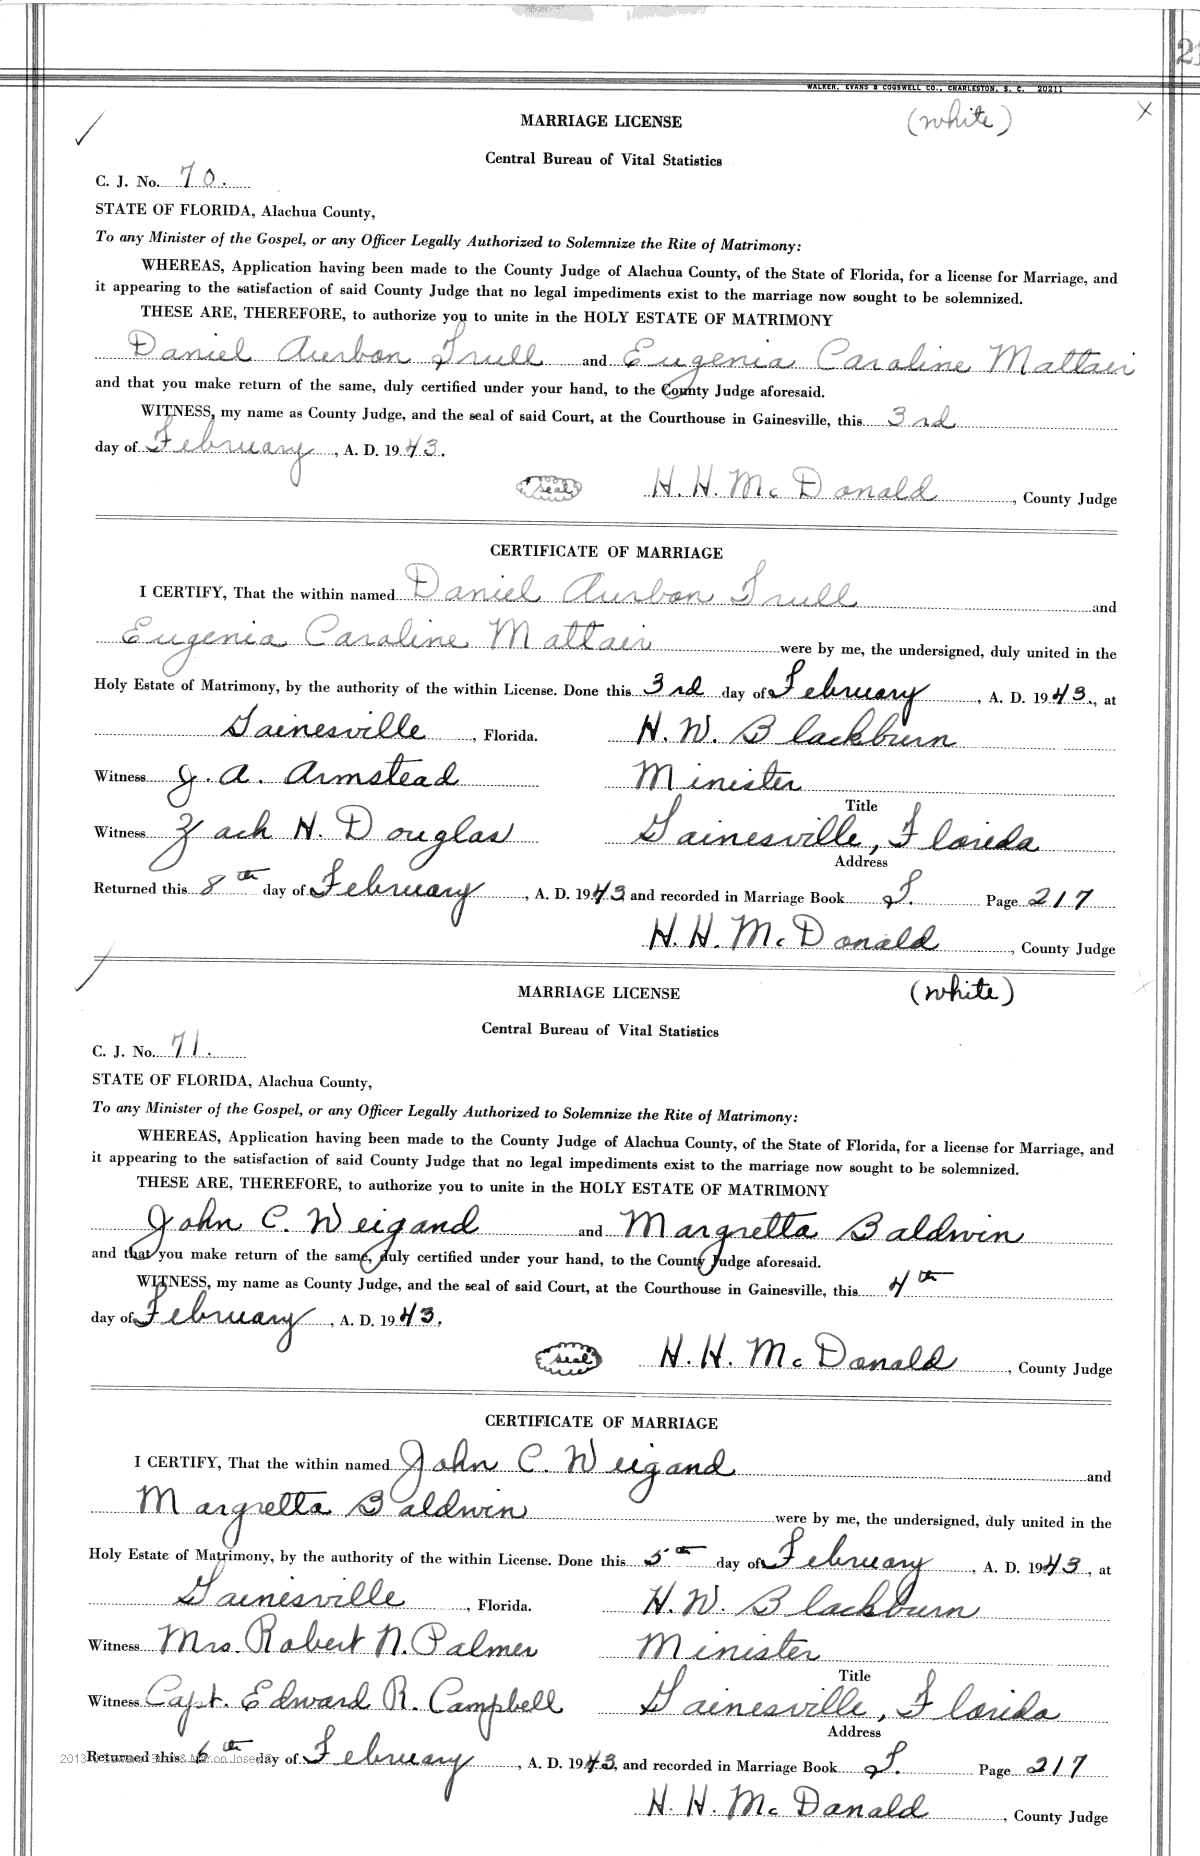 21
WALKER, EVANS & COGSWELL CO., CHARLESTON, S. C. 20211
MARRIAGE LICENSE (white) X
Central Bureau of Vital Statistics
C. J. No. 70.
STATE OF FLORIDA, Alachua County,
To any Minister of the Gospel, or any Officer Legally Authorized to Solemnize the Rite of Matrimony:
WHEREAS, Application having been made to the County Judge of Alachua County, of the State of Florida, for a license for Marriage, and
it appearing to the satisfaction of said County Judge that no legal impediments exist to the marriage now sought to be solemnized.
THESE ARE, THEREFORE, to authorize you to unite in the HOLY ESTATE OF MATRIMONY
Daniel Aurbon Trull and Eugenia Caroline Mattair
and that you make return of the same, duly certified under your hand, to the County Judge aforesaid.
WITNESS, my name as County Judge, and the seal of said Court, at the Courthouse in Gainesville, this 3rd
day of February, A. D. 1943.
seal H. H. McDonald, County Judge
CERTIFICATE OF MARRIAGE
I CERTIFY, That the within named Daniel Aurbon Trull and
Eugenia Caroline Mattair were by me, the undersigned, duly united in the
Holy Estate of Matrimony, by the authority of the within License. Done this 3rd day of February, A. D. 1943., at
Gainesville, Florida. H. W. Blackburn
Witness J. A. Armstead Minister
Title
Witness Zach H. Douglas Gainesville, Florida
Address
Returned this 8th day of February, A. D. 1943 and recorded in Marriage Book Page 217
H. H. McDonald, County Judge
MARRIAGE LICENSE (white)
Central Bureau of Vital Statistics
C. J. No. 71.
STATE OF FLORIDA, Alachua County,
To any Minister of the Gospel, or any Officer Legally Authorized to Solemnize the Rite of Matrimony:
WHEREAS, Application having been made to the County Judge of Alachua County, of the State of Florida, for a license for Marriage, and
it appearing to the satisfaction of said County Judge that no legal impediments exist to the marriage now sought to be solemnized.
THESE ARE, THEREFORE, to authorize you to unite in the HOLY ESTATE OF MATRIMONY
John C. Weigand and Margretta Baldwin
and that you make return of the same, duly certified under your hand, to the County Judge aforesaid.
WITNESS, my name as County Judge, and the seal of said Court, at the Courthouse in Gainesville, this 4th
day of February, A. D. 1943.
seal H. H. McDonald, County Judge
CERTIFICATE OF MARRIAGE
I CERTIFY, That the within named John C. Weigand and
Margretta Baldwin were by me, the undersigned, duly united in the
Holy Estate of Matrimony, by the authority of the within License. Done this 5th day of February, A. D. 1943, at
Gainesville, Florida. H. W. Blackburn
Witness Mrs. Robert N. Palmer Minister
Title
Witness Capt. Edward R. Campbell Gainesville, Florida
Address
Returned this 6th day of February, A. D. 1943, and recorded in Marriage Book Page 217
H. H. McDonald, County Judge